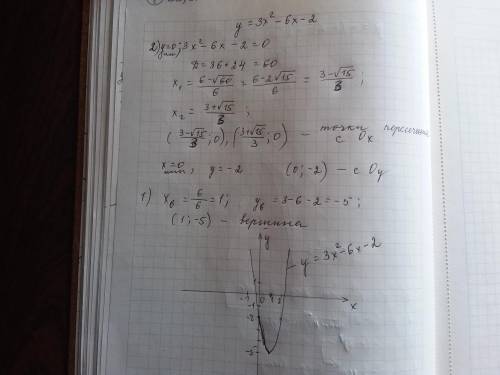 y = 3x² - 6x - 2
2) y = 0; 3x² - 6x - 2 = 0
D = 36 + 24 = 60
x₁ = (6 - √60)/6 = (6 - 2√15)/6 = (3 - √15)/3 ;
x₂ = (3 + √15)/3 ;
((3 - √15)/3 ; 0), ((3 + √15)/3 ; 0) - точки
с x
x = 0, y = -2 (0; -2) - с Oy
1) xв = 6/6 = 1; yв = 3 - 6 - 2 = -5 ;
(1; -5) - вершина
y
y = 3x² - 6x - 2
-1 0 1
x
-1
-2
-5